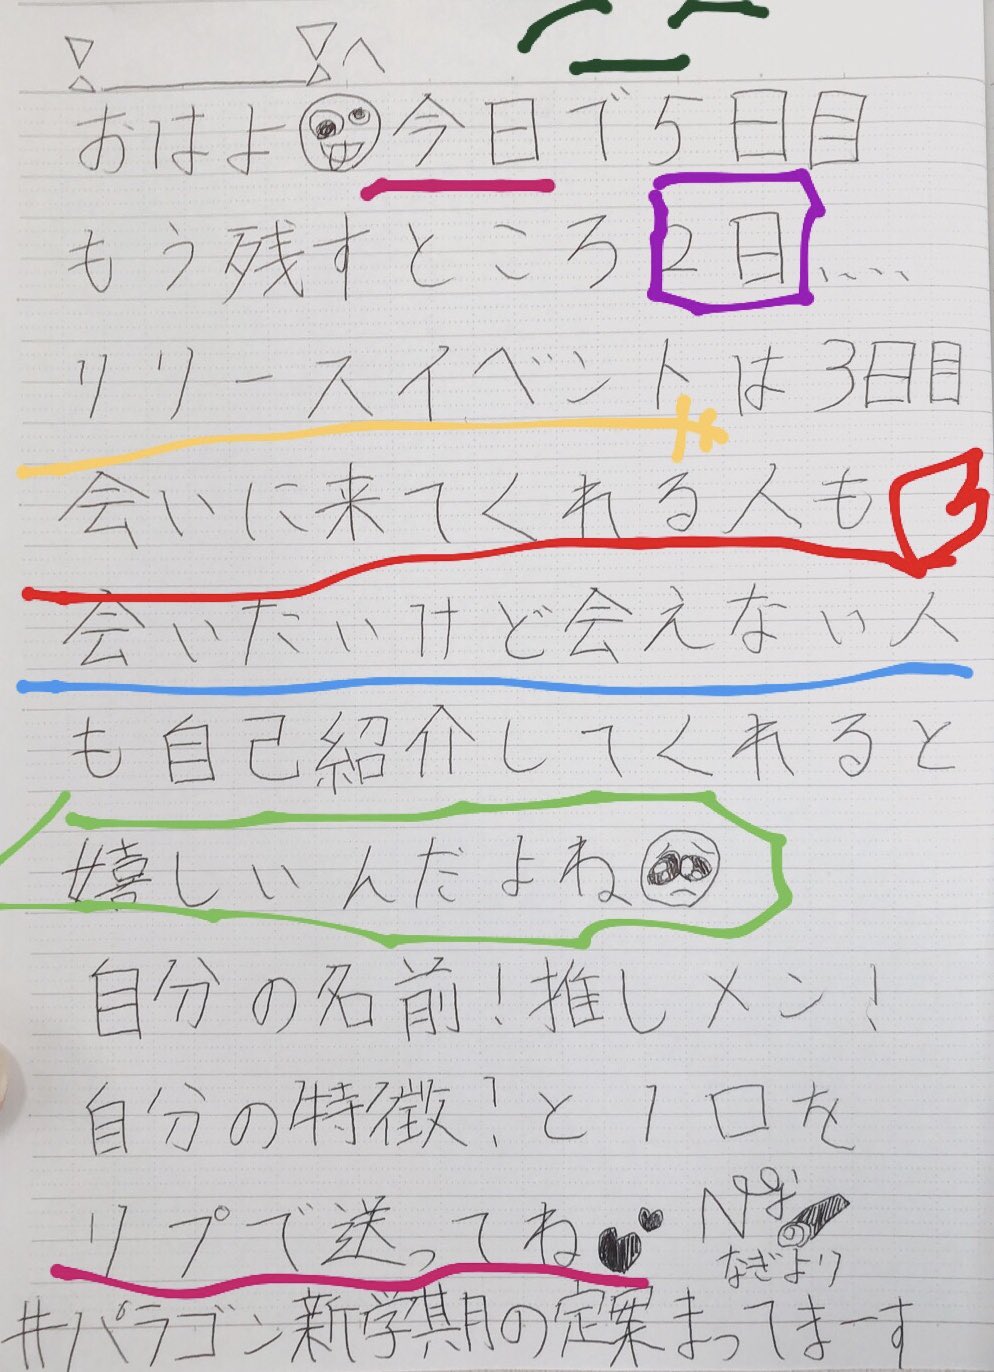 へ
おはよ 今日で5日目
もう残すところ2日....
リリースイベントは3日目
会いに来てくれる人も
会いたいけど会えない人
も自己紹介してくれると
嬉しいんだよね
自分の名前!推しメン!
自分の特徴!と1口を
リプで送ってね
なぎより
#パラゴン新学期の定案まってまーす